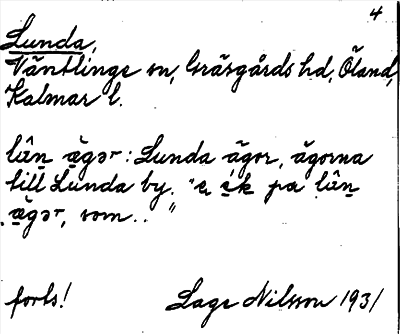 4
Lunda,
Väntlinge sn, Gräsgårds hd, Öland,
Kalmar l.
lûn ägər: Lunda ägor, ägorna
till Lunda by. "e, ik pa lûn
ägər, som.."
forts! Lage Nilsson 1931